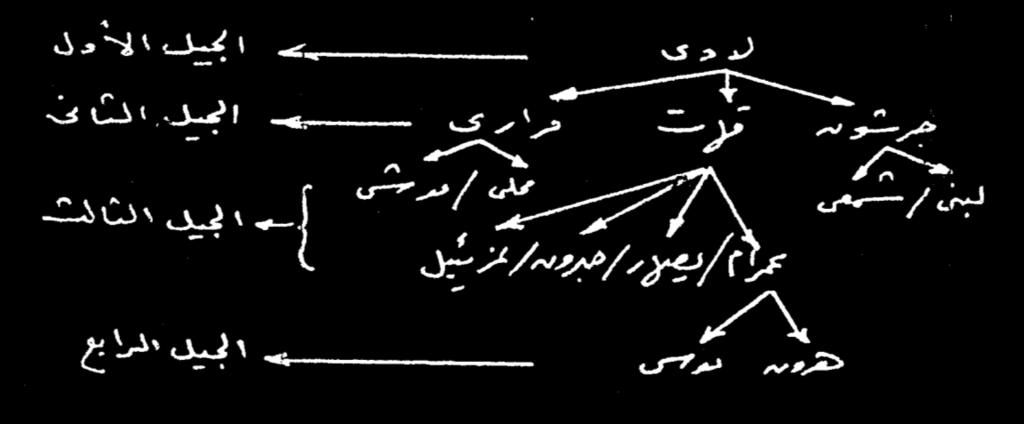 لاوى الجيل الأول
جرشون قهات مرارى الجيل الثانى
لبنى / شمعى محلى / موشى
عمرام / يصهار / حبرون / عزئيل الجيل الثالث
هرون موسى الجيل الرابع